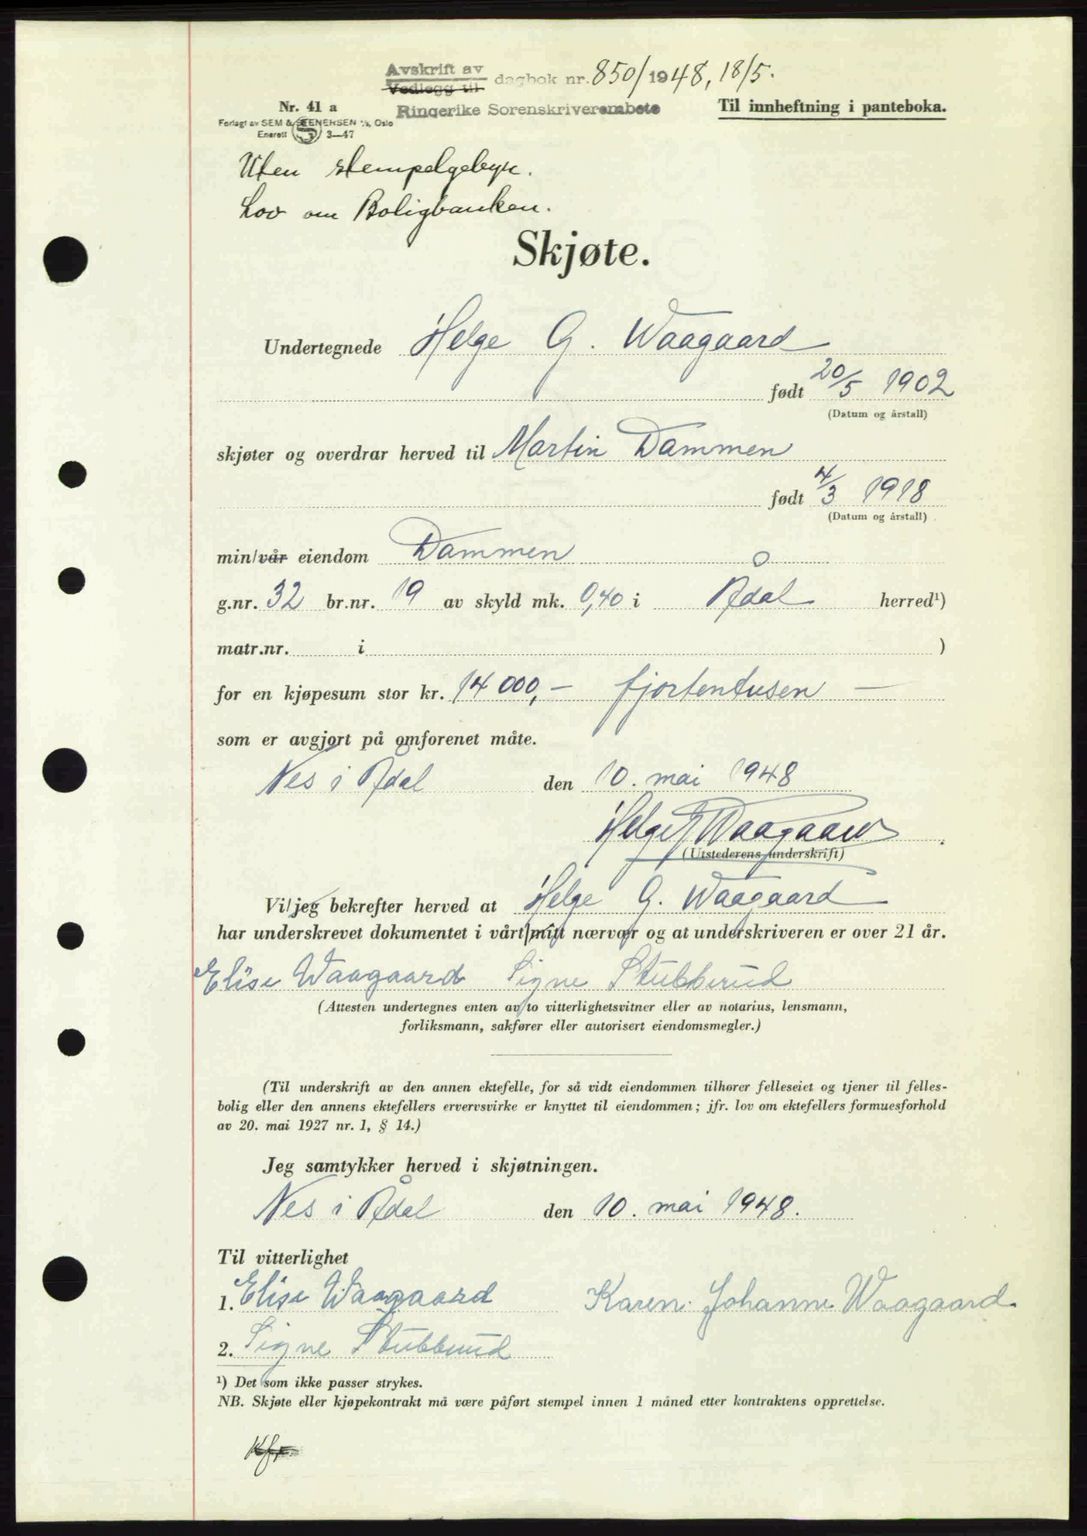 Avskrift av
Vedlegg til dagbok nr. 850/1948, 18/5.
Ringerike Sorenskriverembete
Nr. 41 a
Til innheftning i panteboka.
Forlagt av SEM & STENERSEN A/s, Oslo
Enerett S 3—47
Uten stempelgebyr.
Lov om Boligbanken.
Skjøte.
Undertegnede Helge G. Waagaard
født 20/5 1902
(Datum og årstall)
skjøter og overdrar herved til Martin Dammen
født 4/3 1918
(Datum og årstall)
min/vår eiendom Dammen
g.nr. 32 br.nr. 19 av skyld mk. 0,40 i Ådal herred¹)
matr.nr. i )
for en kjøpesum stor kr. 14 000,- fjortentusen —
som er avgjort på omforenet måte.
Nes i Ådal den 10. mai 1948
Helge G Waagaard
(Utstederens underskrift)
Vi/jeg bekrefter herved at Helge G. Waagaard
har underskrevet dokumentet i vårt/mitt nærvær og at underskriveren er over 21 år.
Elise Waagaard Signe Stubberud
(Attesten undertegnes enten av to vitterlighetsvitner eller av notarius, lensmann,
forliksmann, sakfører eller autorisert eiendomsmegler.)
(Til underskrift av den annen ektefelle, for så vidt eiendommen tilhører felleseiet og tjener til felles-
bolig eller den annens ektefellers ervervsvirke er knyttet til eiendommen; jfr. lov om ektefellers formuesforhold
av 20. mai 1927 nr. 1, § 14.)
Jeg samtykker herved i skjøtningen.
Nes i Ådal den 10. mai 1948.
Til vitterlighet
1. Elise Waagaard Karen Johanne Waagaard.
2. Signe Stubberud
¹) Det som ikke passer strykes.
NB. Skjøte eller kjøpekontrakt må være påført stempel innen 1 måned etter kontraktens opprettelse.